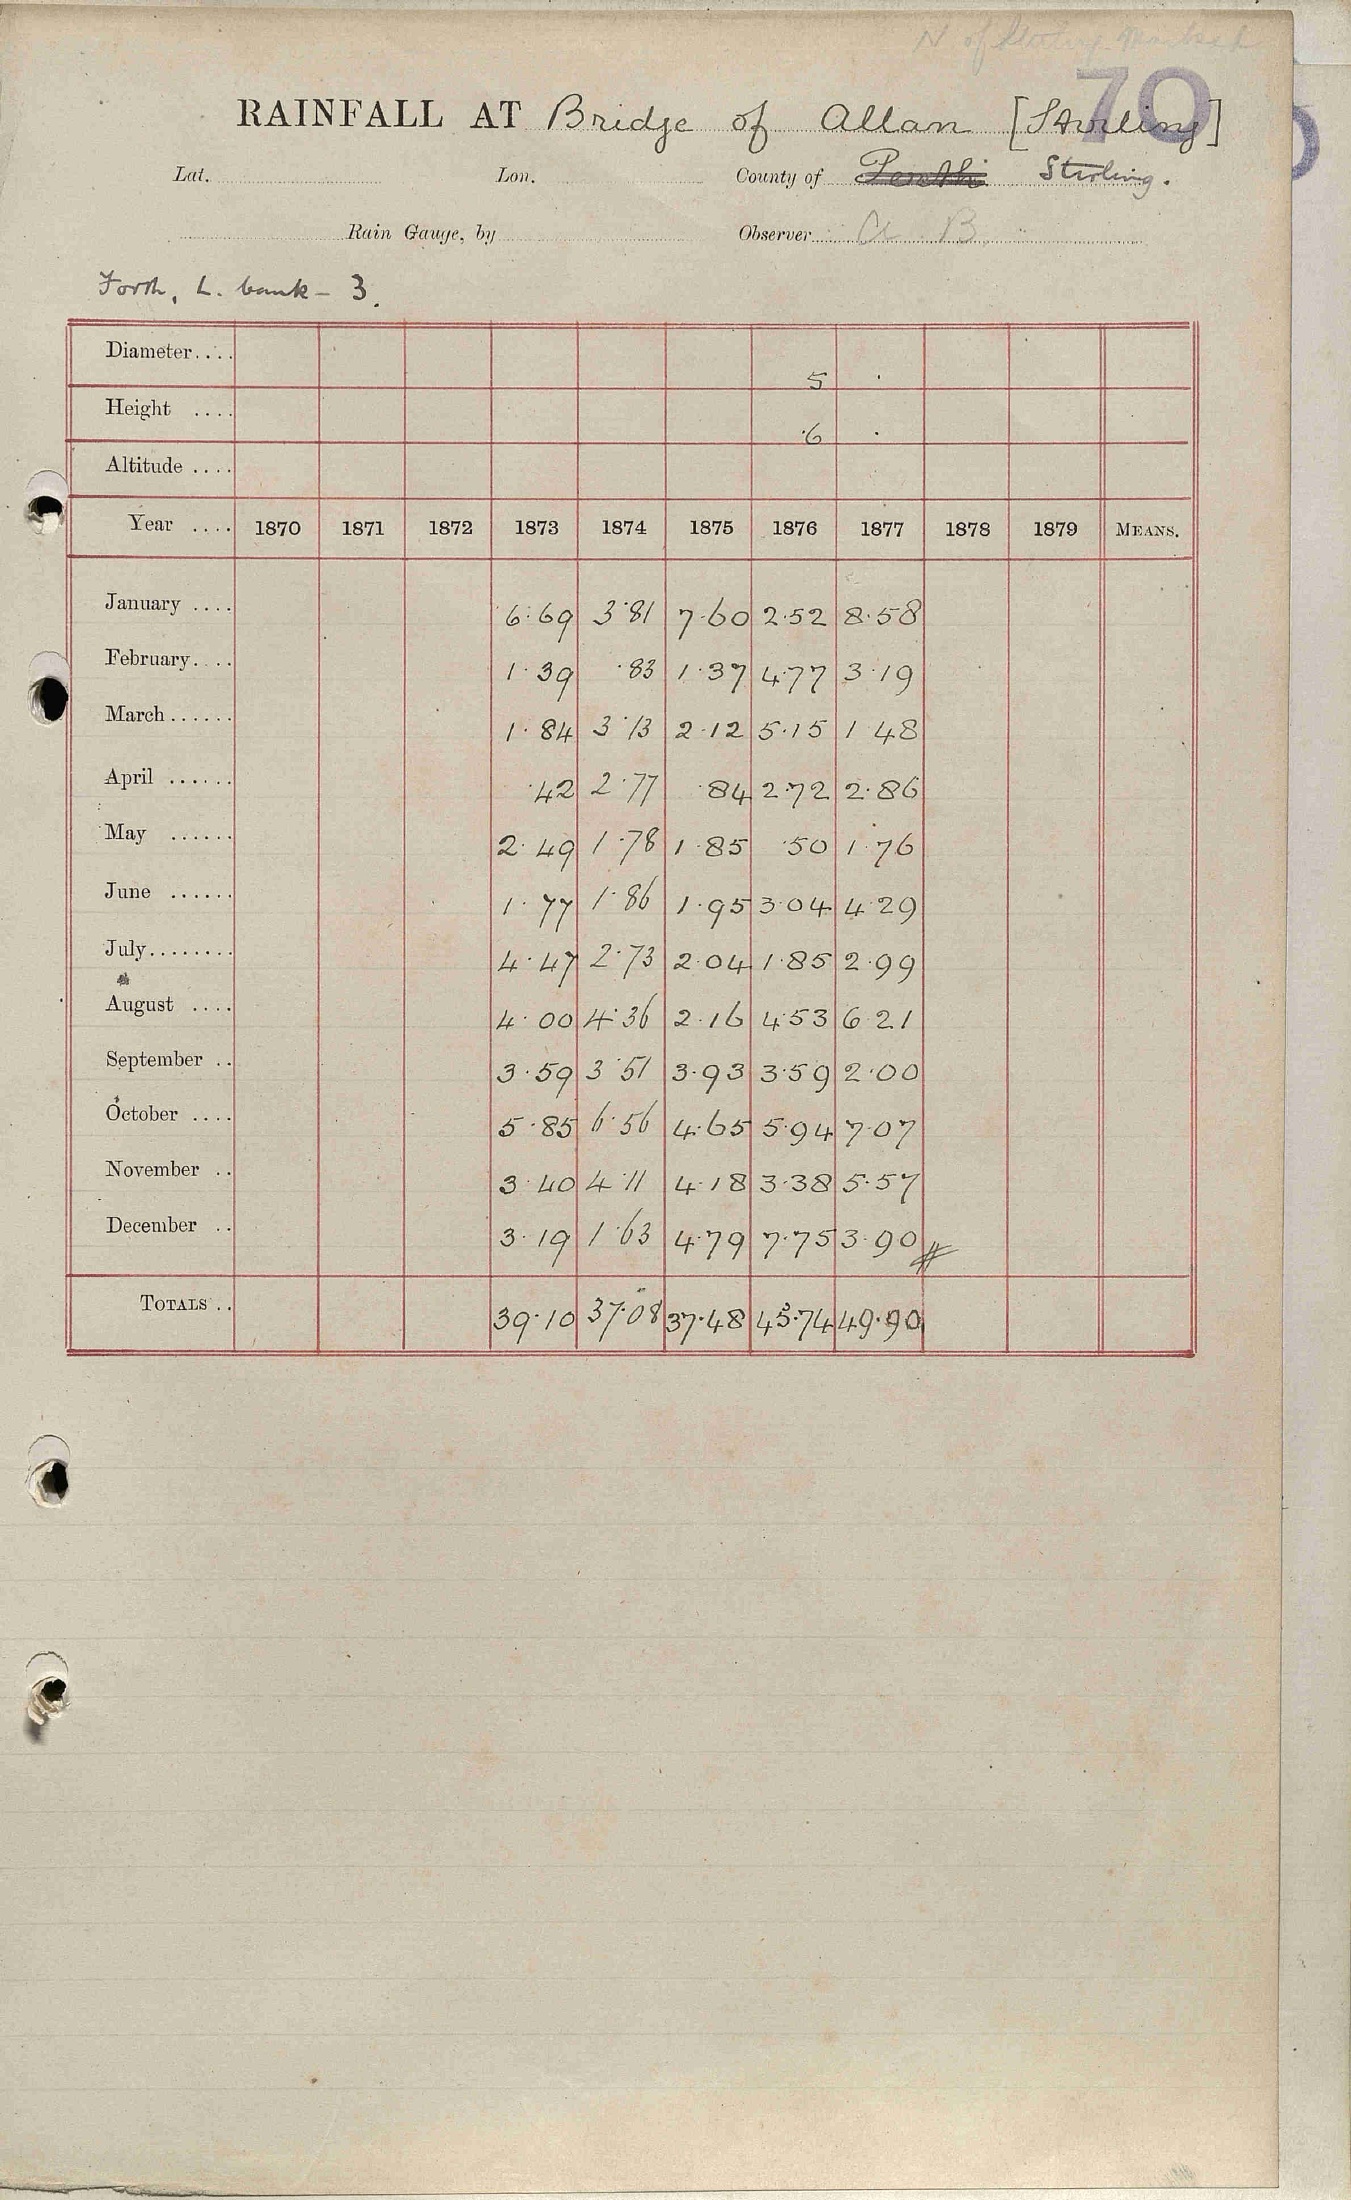 70
RAINFALL AT Bridge of Allan [Stirling]
Lat. Lon. County of Perth Stirling.
Rain Gauge, by Observer A B
Forth, L. bank – 3.
Diameter.... 5 .
Height .... ·6 .
Altitude ....
Year .... 1870 1871 1872 1873 1874 1875 1876 1877 1878 1879 MEANS.
January .... 6·69 3·81 7·60 2·52 8·58
February.... 1·39 ·83 1·37 4·77 3·19
March...... 1·84 3·13 2·12 5·15 1·48
April ...... ·42 2·77 ·84 2·72 2·86
May ...... 2·49 1·78 1·85 ·50 1·76
June ...... 1·77 1·86 1·95 3·04 4·29
July........ 4·47 2·73 2·04 1·85 2·99
August .... 4·00 4·36 2·16 4·53 6·21
September .. 3·59 3·51 3·93 3·59 2·00
October .... 5·85 6·56 4·65 5·94 7·07
November .. 3·40 4·11 4·18 3·38 5·57
December .. 3·19 1·63 4·79 7·75 3·90
TOTALS .. 39·10 37·08 37·48 45·74 49·90